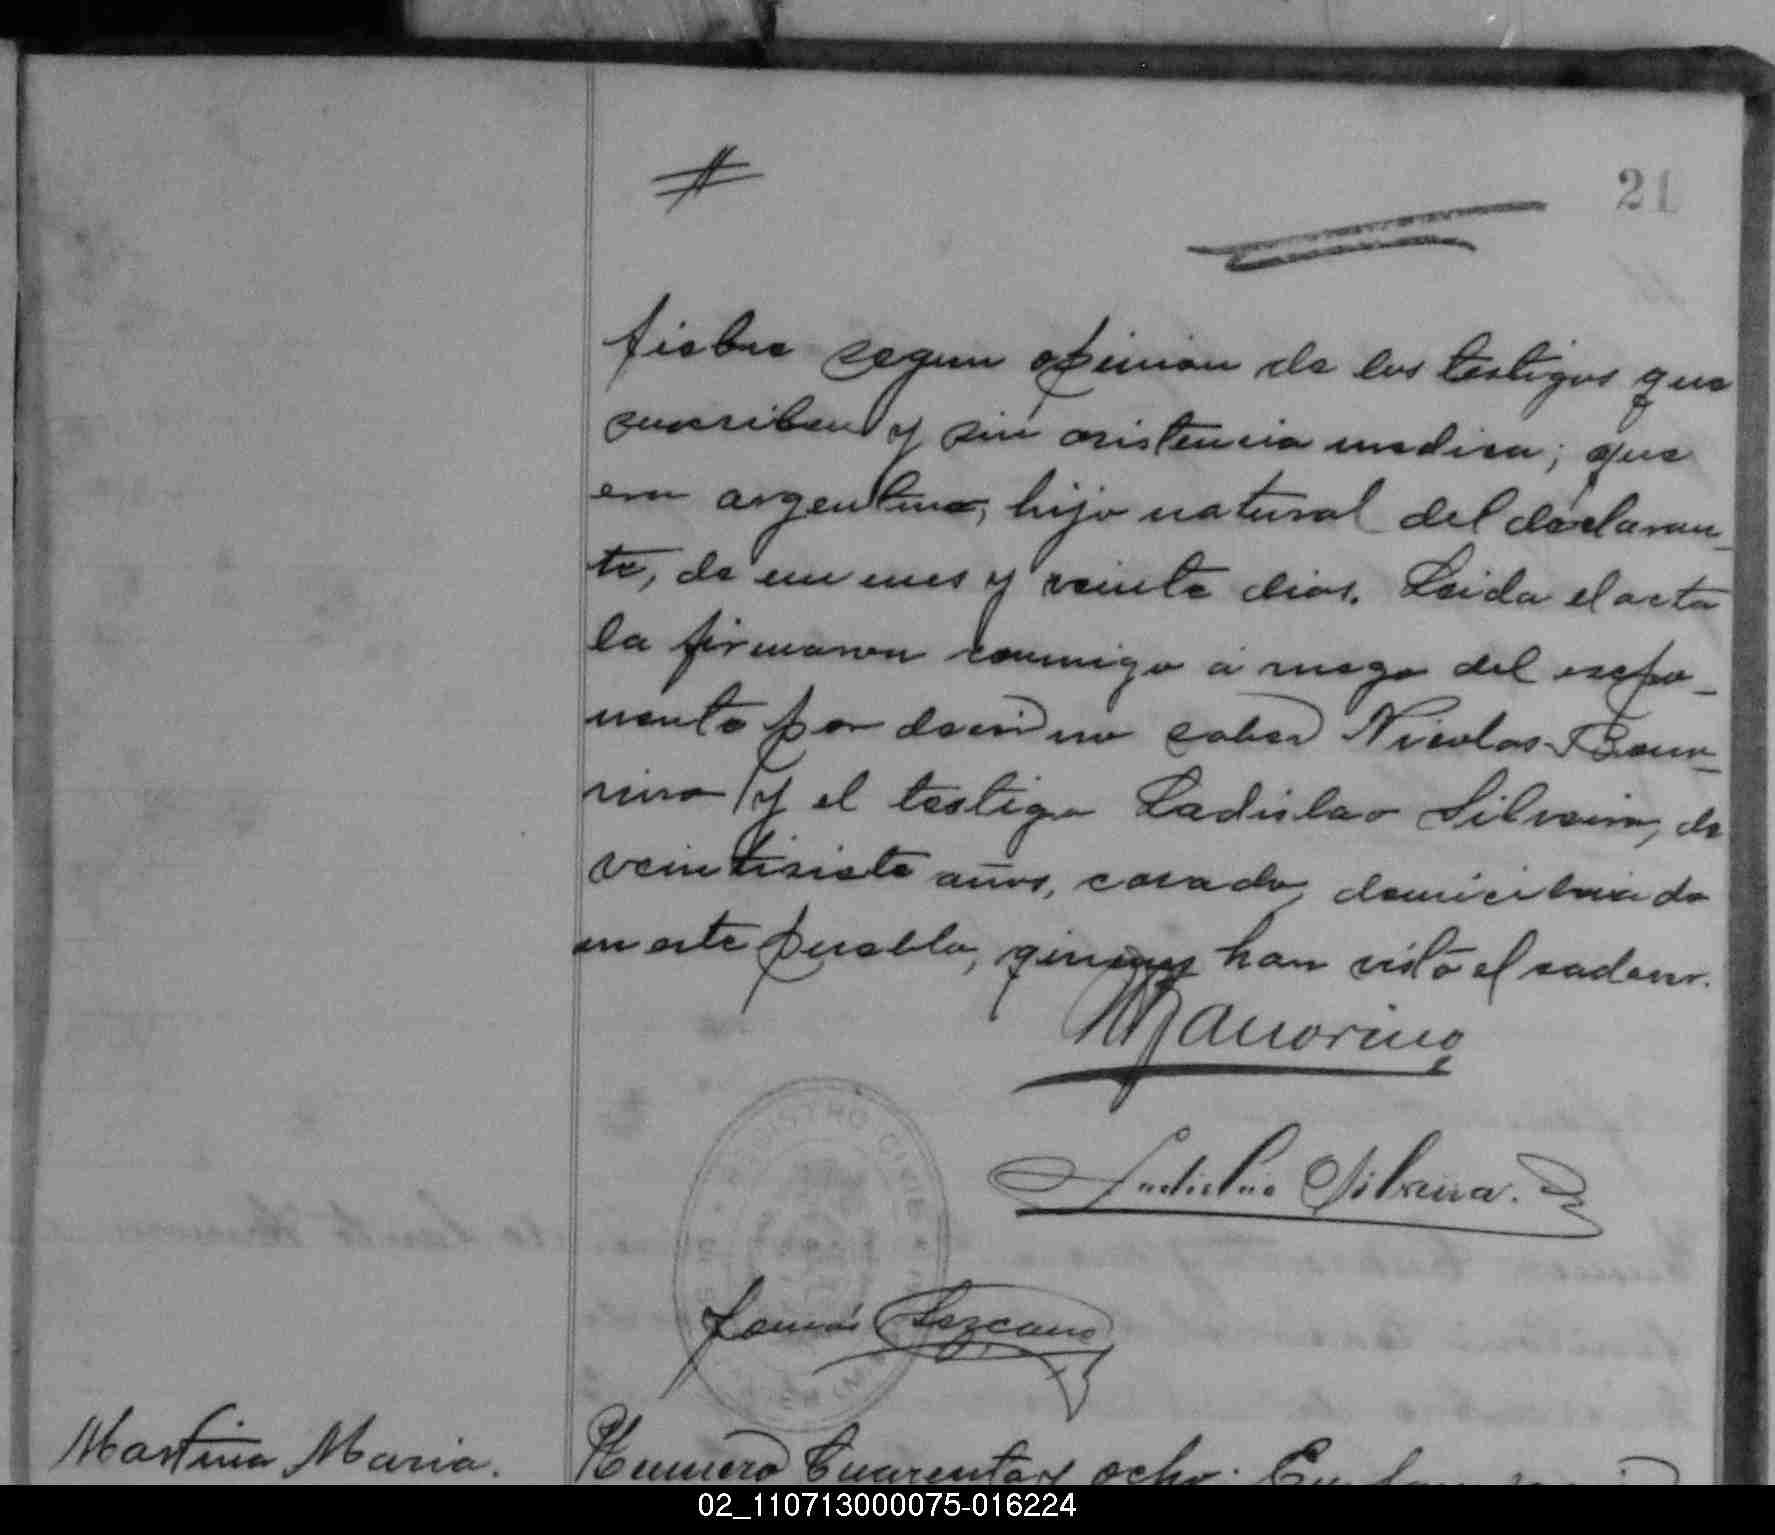 21
fiebre segun opinion de los testigos que
suscriben y sin asistencia medica; que
era argentino, hijo natural del declaran-
te, de un mes y veinte dias. Leida el acta
la firmaron conmigo á ruego del espo-
nente por decir no saber Nicolas
y el testigo Ladislao Silveira, de
veintisiete años, casado, domiciliado
en este pueblo, quienes han visto el cadaver.
Ladislao Silveira.
REGISTRO CIVIL
Tomás Lezcano
Martina Maria.
Numero Cuarenta y ocho. En
02_110713000075-016224